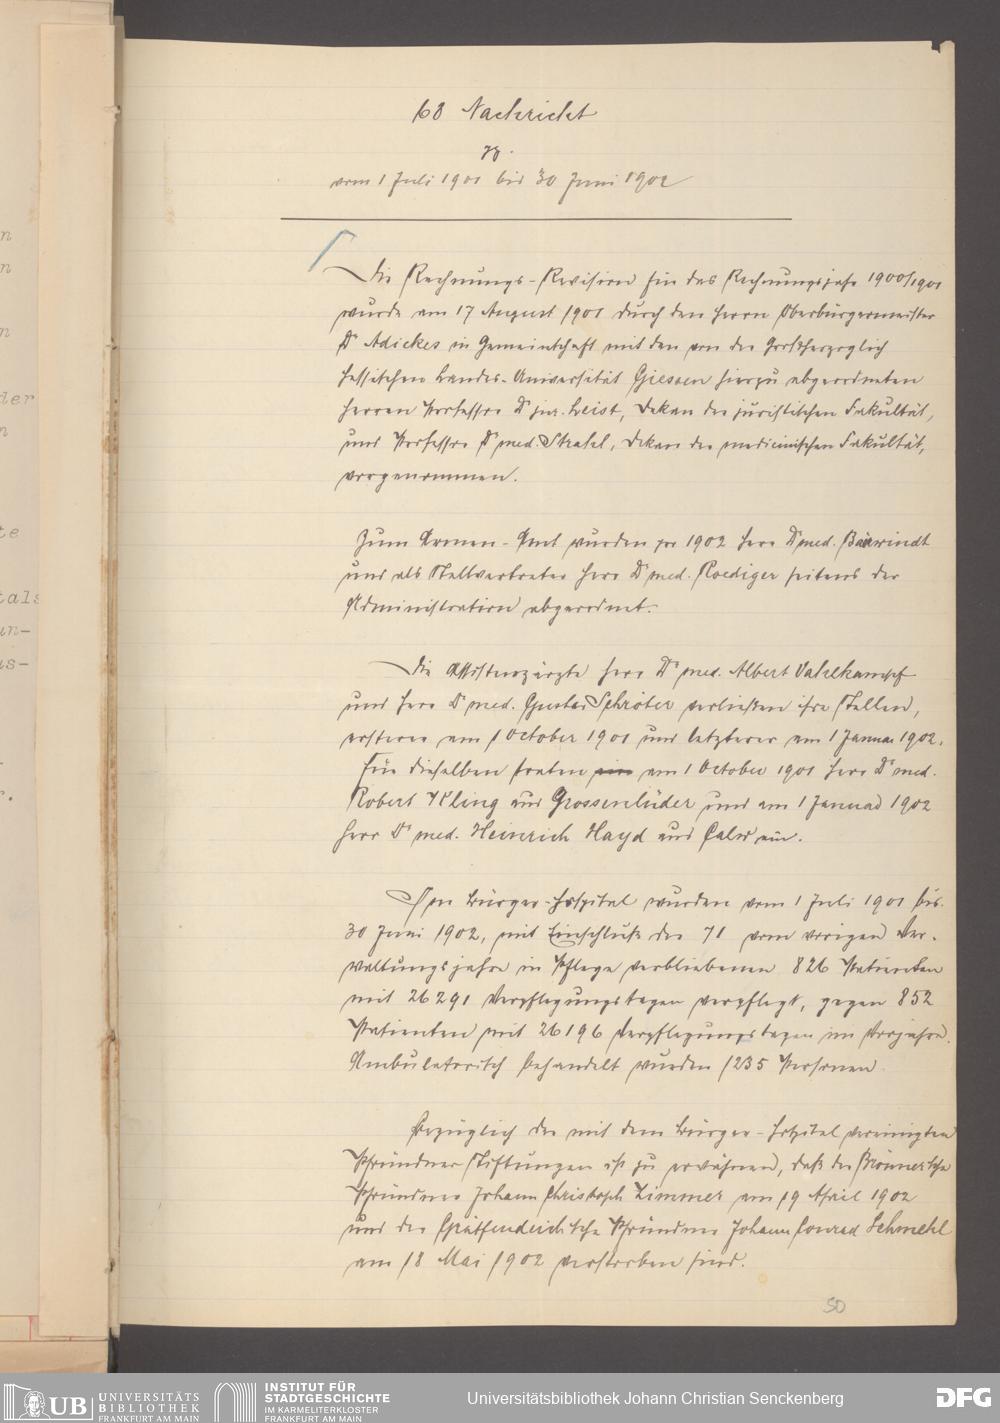 68 Nachricht
vom 1 Juli 1901 bis 30 Juni 1902
Die Rechnungs-Revision für das Rechnungsjahr 1900/1901
wurde am 17 August 1901 durch den Herrn Oberbürgermeister
Dr Adickes in Gemeinschaft mit den von der Großherzoglich
Hessischen Landes-Universität Giessen hierzu abgeordneten
Herren Professor Dr jur. Leist, Dekan der juristischen Fakultät,
und Professor Dr med. Strahl, Dekan der medicinischen Fakultät,
vorgenommen.
Zum Armen-Amt wurden pro 1902 Herr Dr med. Bärwindt
und als Stellvertreter Herr Dr med. Roediger seitens der
Administration abgeordnet.
Die Assistenzärzte Herr Dr med. Albert Vahlkampf
und Herr Dr med. Gustav Schröter verließen ihre Stellen,
ersterer am 1 October 1901 und letzterer am 1 Januar 1902.
Für dieselben traten ein am 1 October 1901 Herr Dr med.
Robert Kling aus Grossenlüder und am 1 Januar 1902
Herr Dr med. Heinrich Hayd aus Calw ein.
Im Bürger-Hospital wurden vom 1 Juli 1901 bis
30 Juni 1902, mit Einschluß der 71 vom vorigen Ver-
waltungsjahre in Pflege verbliebenen 826 Patienten
mit 26291 Verpflegungstagen verpflegt, gegen 852
Patienten mit 26196 Verpflegungstagen im Vorjahre.
Ambulatorisch behandelt wurden 1235 Personen.
Bezüglich der mit dem Bürger-Hospital vereinigten
Pfründner Stiftungen ist zu erwähnen, daß der Brönner'sche
Pfründner Johann Christoph Zimmer am 19 April 1902
und der Gräffendeich'sche Pfründner Johann Conrad Schmehl
am 18 Mai 1902 verstorben sind.
50
n
n
n
der
n
te
tals
un-
us-
r.
UB UNIVERSITÄTS
BIBLIOTHEK
FRANKFURT AM MAIN
INSTITUT FÜR
STADTGESCHICHTE
IM KARMELITERKLOSTER
FRANKFURT AM MAIN
Universitätsbibliothek Johann Christian Senckenberg
DFG